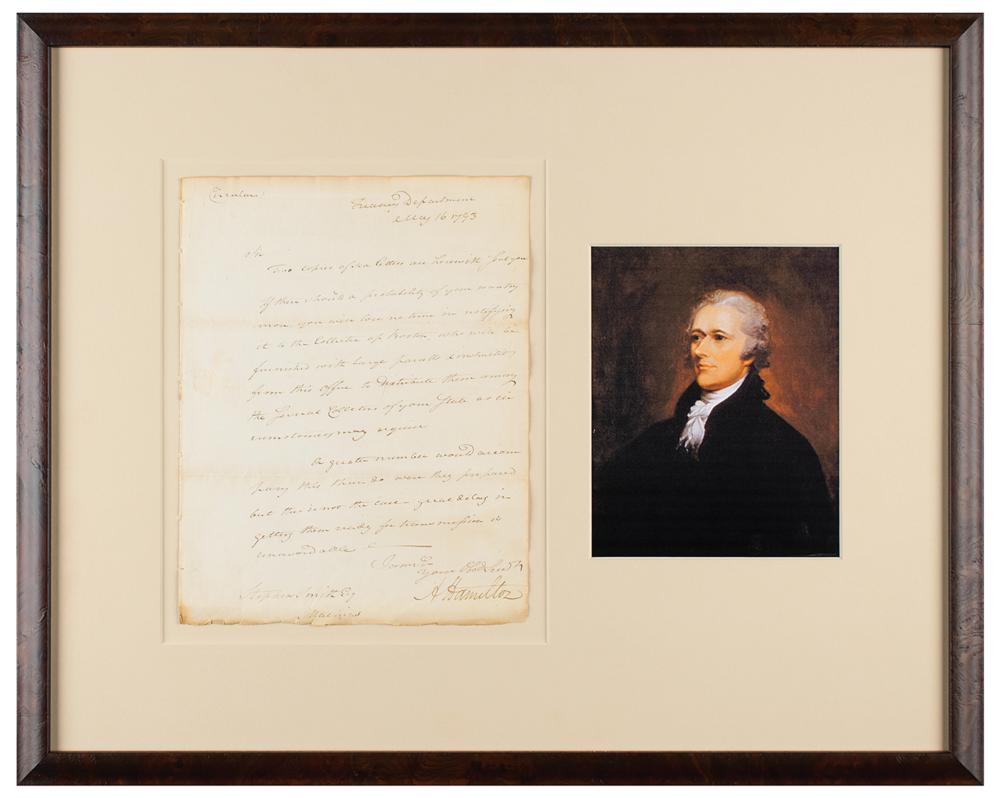 (Circular)
Treasury Department
May 16 1793
Sir
Two copies of Sea Letters are herewith sent you
If there should be a probability of your wanting
more you will lose no time in notifying
it to the Collector of Boston, who will be
furnished with large parcells & instructions
from this Office to distribute them among
the several Collectors of your State as cir
cumstances may require
A greater number would accom
pany this there do were they prepared
but this is not the case – great delay in
getting them ready for transmission is
unavoidable
I am Sir
Your Obed Servt
A Hamilton
Stephen Smith Esq
Machias